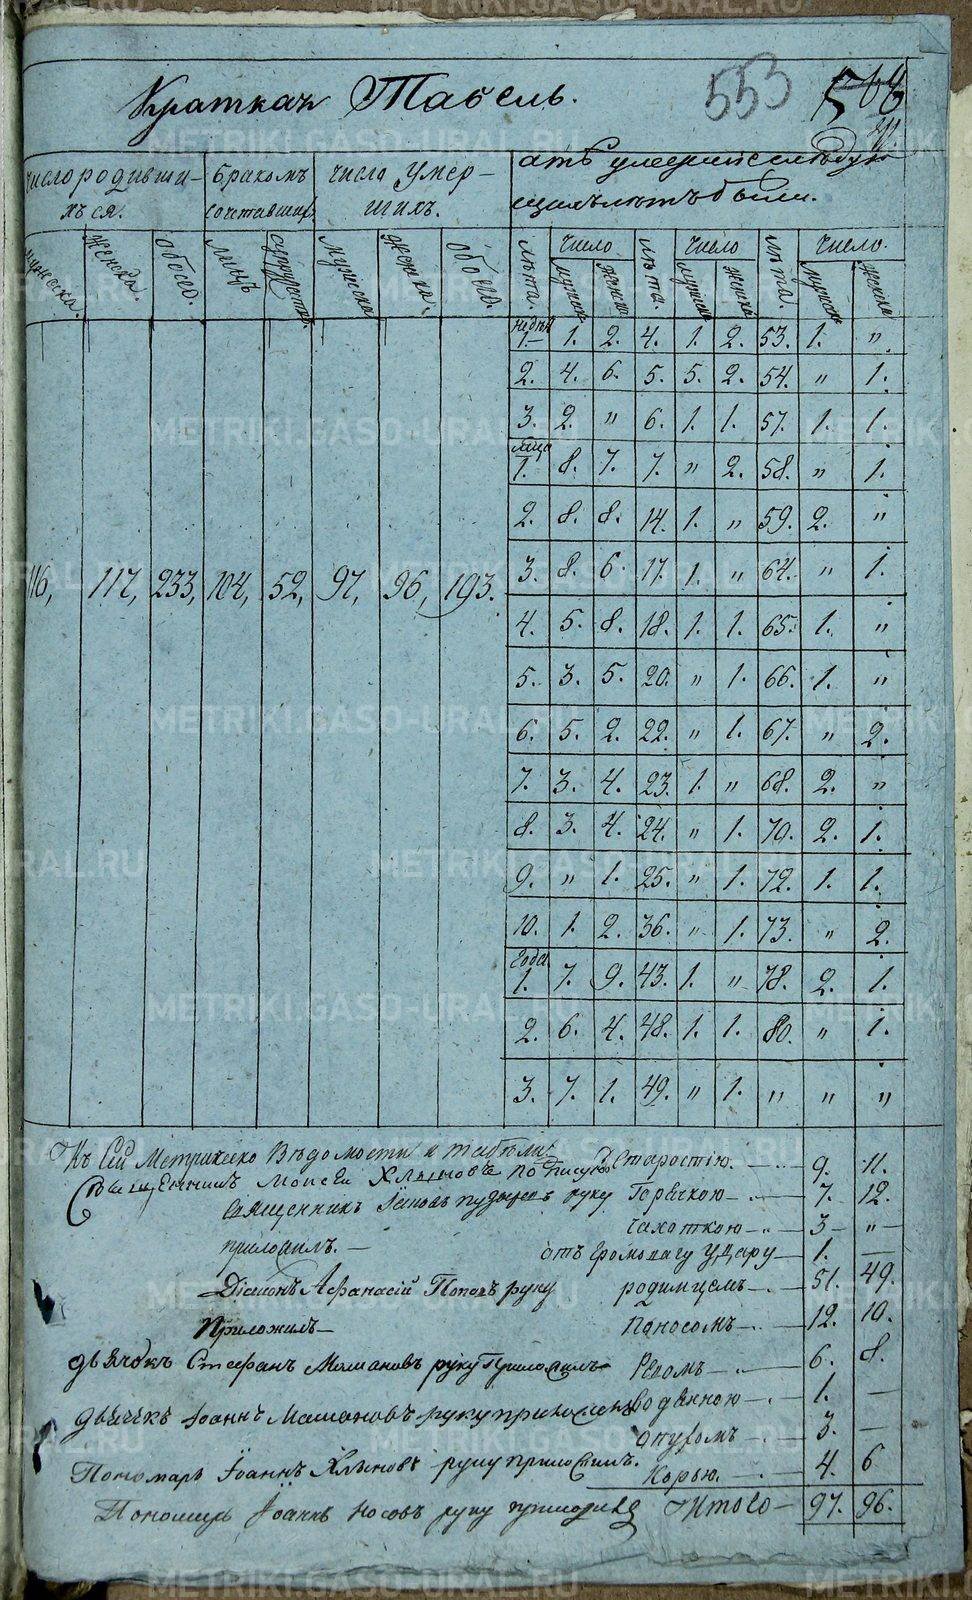 Краткая Табель.
553
числородивши-
хъся.
бракомъ
сочетавших
числа умер-
шихъ.
Женска.
обоего.
лицъ
мужска
женска.
обоего.
лѣта.
число
мужска
женска
лѣта.
число
мужска
женска
лѣта.
число.
мужска
женска
116, 117, 233, 104, 52, 97, 96, 193.
недѣли
1. 1. 2. 4. 1. 2. 53. 1. "
2. 4. 6. 5. 5. 2. 54. " 1.
3. 2. " 6. 1. 1. 57. 1. 1.
мѣсяца
1. 8. 7. 7. " 2. 58. " 1.
2. 8. 8. 14. 1. " 59. 2. "
3. 8. 6. 17. 1. " 64. " 1.
4. 5. 8. 18. 1. 1. 65. 1. "
5. 3. 5. 20. " 1. 66. 1. "
6. 5. 2. 22. " 1. 67. " 2.
7. 3. 4. 23. 1. " 68. 2. "
8. 3. 4. 24. " 1. 70. 2. 1.
9. " 1. 25. " 1. 72. 1. 1.
10. 1. 2. 36. " 1. 73. " 2.
Года
1. 7. 9. 43. 1. " 78. 2. 1.
2. 6. 4. 48. 1. 1. 80. " 1.
3. 7. 1. 49. " 1. " " "
Къ Сей Метрическо Вѣдомости и табѣли
Священникъ Моисей Хлыновъ подписуюсь
Священникъ Іаковъ руку
приложилъ.
Діаконъ Афанасій Поповъ руку
Приложилъ
дьячокъ Стефанъ Мамановъ руку Приложилъ
дьячекъ Іоаннъ Мамановъ руку приложилъ
Пономарь Іоаннъ Хлыновъ руку приложилъ.
Пономарь Іоаннъ Носовъ руку приложилъ
Старостію. 9. 11.
Горячкою 7. 12.
Чахоткою 3 "
отъ громоваго удару 1. —
родимцемъ 51. 49.
Поносомъ 12. 10.
Ревомъ 6. 8.
водяною 1. —
опухомъ 3. —
Корью. 4. 6
Итого 97. 96.
METRIKI.GASO-URAL.RU